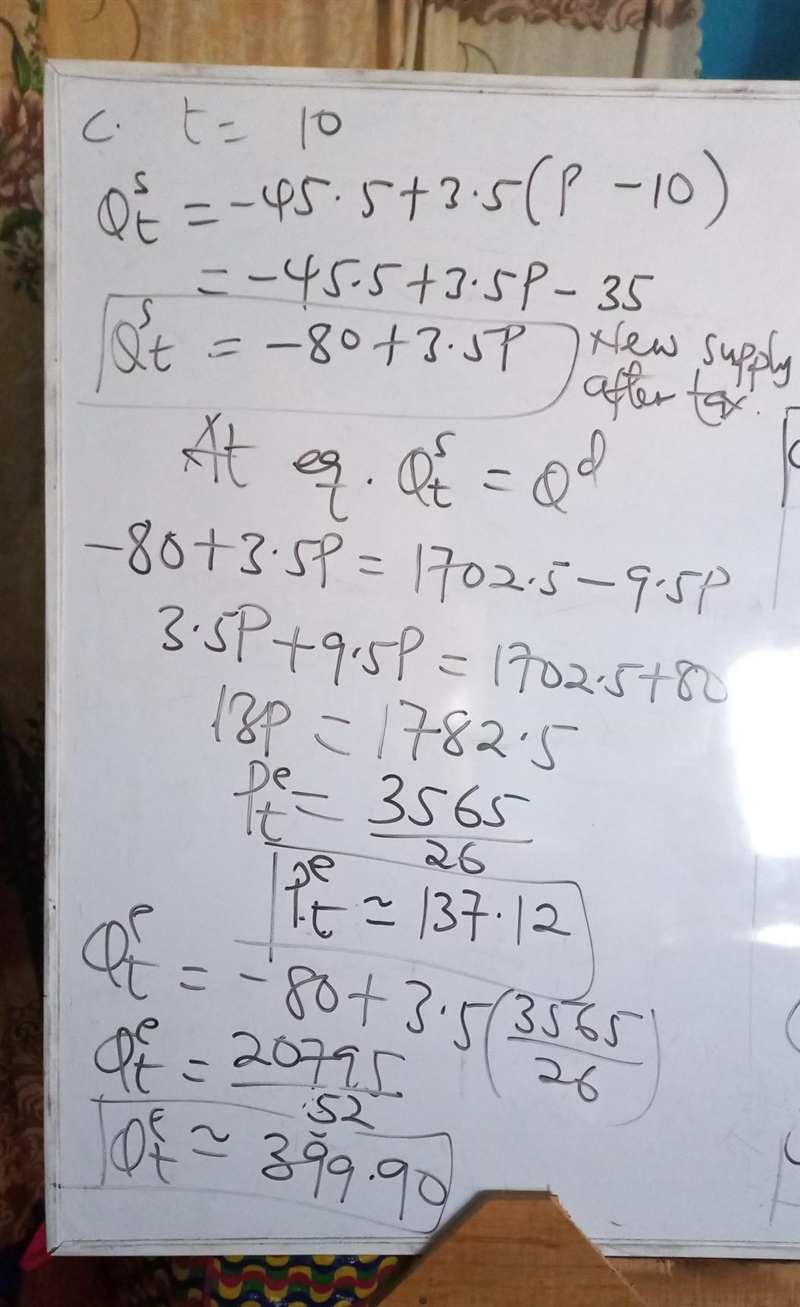 c. t = 10
Q^s_t = -45.5+3.5(P -10)
= -45.5+3.5P - 35
Q^s_t = -80+3.5P New supply after tax.
At eq. Q^s_t = Q^d
-80+3.5P = 1702.5-9.5P
3.5P+9.5P = 1702.5+80
13P = 1782.5
P^e_t = 3565/26
P^e_t ≈ 137.12
Q^e_t = -80+3.5(3565/26)
Q^e_t = 20795/52
Q^e_t ≈ 399.90